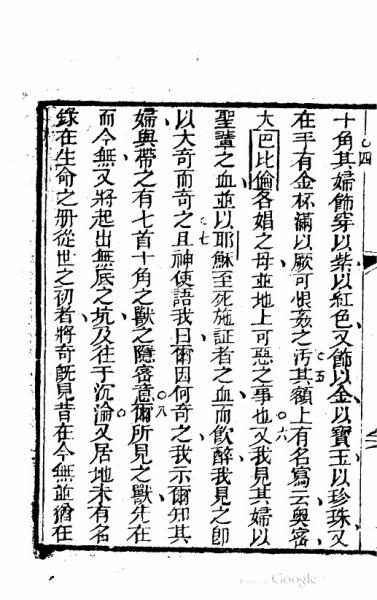 十角其婦飾穿以紫以紅色又飾以金以寶玉以珍珠又
在手有金杯滿以厥可恨姦之污其額上有名寫云奥密
大巴比倫各娼之母並地上可惡之事也又我見其婦以
聖輩之血並以耶穌至死施証者之血而飲醉我見之即
以大奇而奇之且神使語我曰爾因何奇之我示爾知其
婦與帶之有七首十角之獸之隱密意爾所見之獸先在
而今無又將起出無底之坑及往于沉淪又居地未有名
錄在生命之册從世之初者將奇旣見昔在今無並猶在
四
五
六
七
八
Google